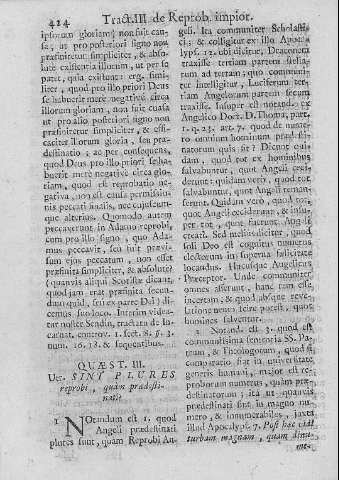 424 Tract. III. de Reprob. impior.
ipsorum gloriam; non fuit cau-
sa, ut pro posteriori signo non
præfiniretur simpliciter, & abso-
lute existentia illorum, ut per se
patet, quia existunt: erg. simi-
liter, quod pro illo priori Deus
se habuerit mere negativè circa
illorum gloriam, non fuit causa
ut pro alio posteriori signo non
præfiniretur simpliciter, & effi-
caciter illorum gloria, seu præ-
destinatio; ac per consequens,
quod Deus pro illo priori se ha-
buerit merè negativè circa glo-
riam, quod est reprobatio ne-
gativa, non est causa permissio-
nis peccati finalis, nec cujuscum-
que alterius. Quomodo autem
peccaverunt in Adamo reprobi,
cum pro illo signo, quo Ada-
mus peccavit, seu fuit prævi-
sum ejus peccatum, non esset
præfinita simpliciter, & absolutè
(quamvis aliqui Scotistæ dicant,
quod jam erat præfinita secun-
dum quid, seu ex parte Dei) di-
cemus suo loco. Interim videa-
tur noster Sendin, tractatu de In-
carnat. controv. 1. sect. 8. §. 3.
num. 16. 18. & sequentibus.
QUÆST. III.
Utr. SINT PLURES
reprobi, quàm prædesti-
nati?
1 NOtandum est 1. quod
Angeli prædestinati
plures sunt, quàm Reprobi An-
geli. Ita communiter Scholasti-
ci: & colligitur ex illo Apoca-
lyps. 12. ubi dicitur, Draconem
traxisse tertiam partem stella-
rum ad terram; quo communi-
ter intelligitur, Luciferum ter-
tiam Angelorum partem secum
traxisse. Insuper est notand. ex
Angelico Doct. D. Thoma, part.
1. q. 23. art. 7. quod de nume-
ro omnium hominum prædesti-
natorum quis sit? Dicunt qui-
dam, quod tot ex hominibus
salvabuntur, quot Angeli ceci-
derunt; quidam verò, quod tot
salvabuntur, quot Angeli reman-
serunt. Quidam verò, quod tot,
quot Angeli ceciderunt, & insu-
per tot, quot fuerunt Angeli
creati. Sed melius dicitur, quod
soli Deo est cognitus numerus
electorum in superna felicitate
locandus. Hucusque Angelicus
Præceptor. Unde communiter
omnes asserunt, hanc rem esse
incertam, & quod absque reve-
latione neutra pars possit, cum
veritate teneri, bene falvetur.
2 Notand. est 3. quod est
communissima sententia SS. Pa-
trum, & Theologorum, quod
simpliciter, & in genere huma-
no (etiam angelico) major est re-
proborum numerus, quàm præ-
destinatorum; ita ut quamvis
prædestinati sint in magno nu-
mero, & innumerabiles, juxta
illud Apocalyps. 7. Post hæc vidi
turbam magnam, quam dinu-
me-